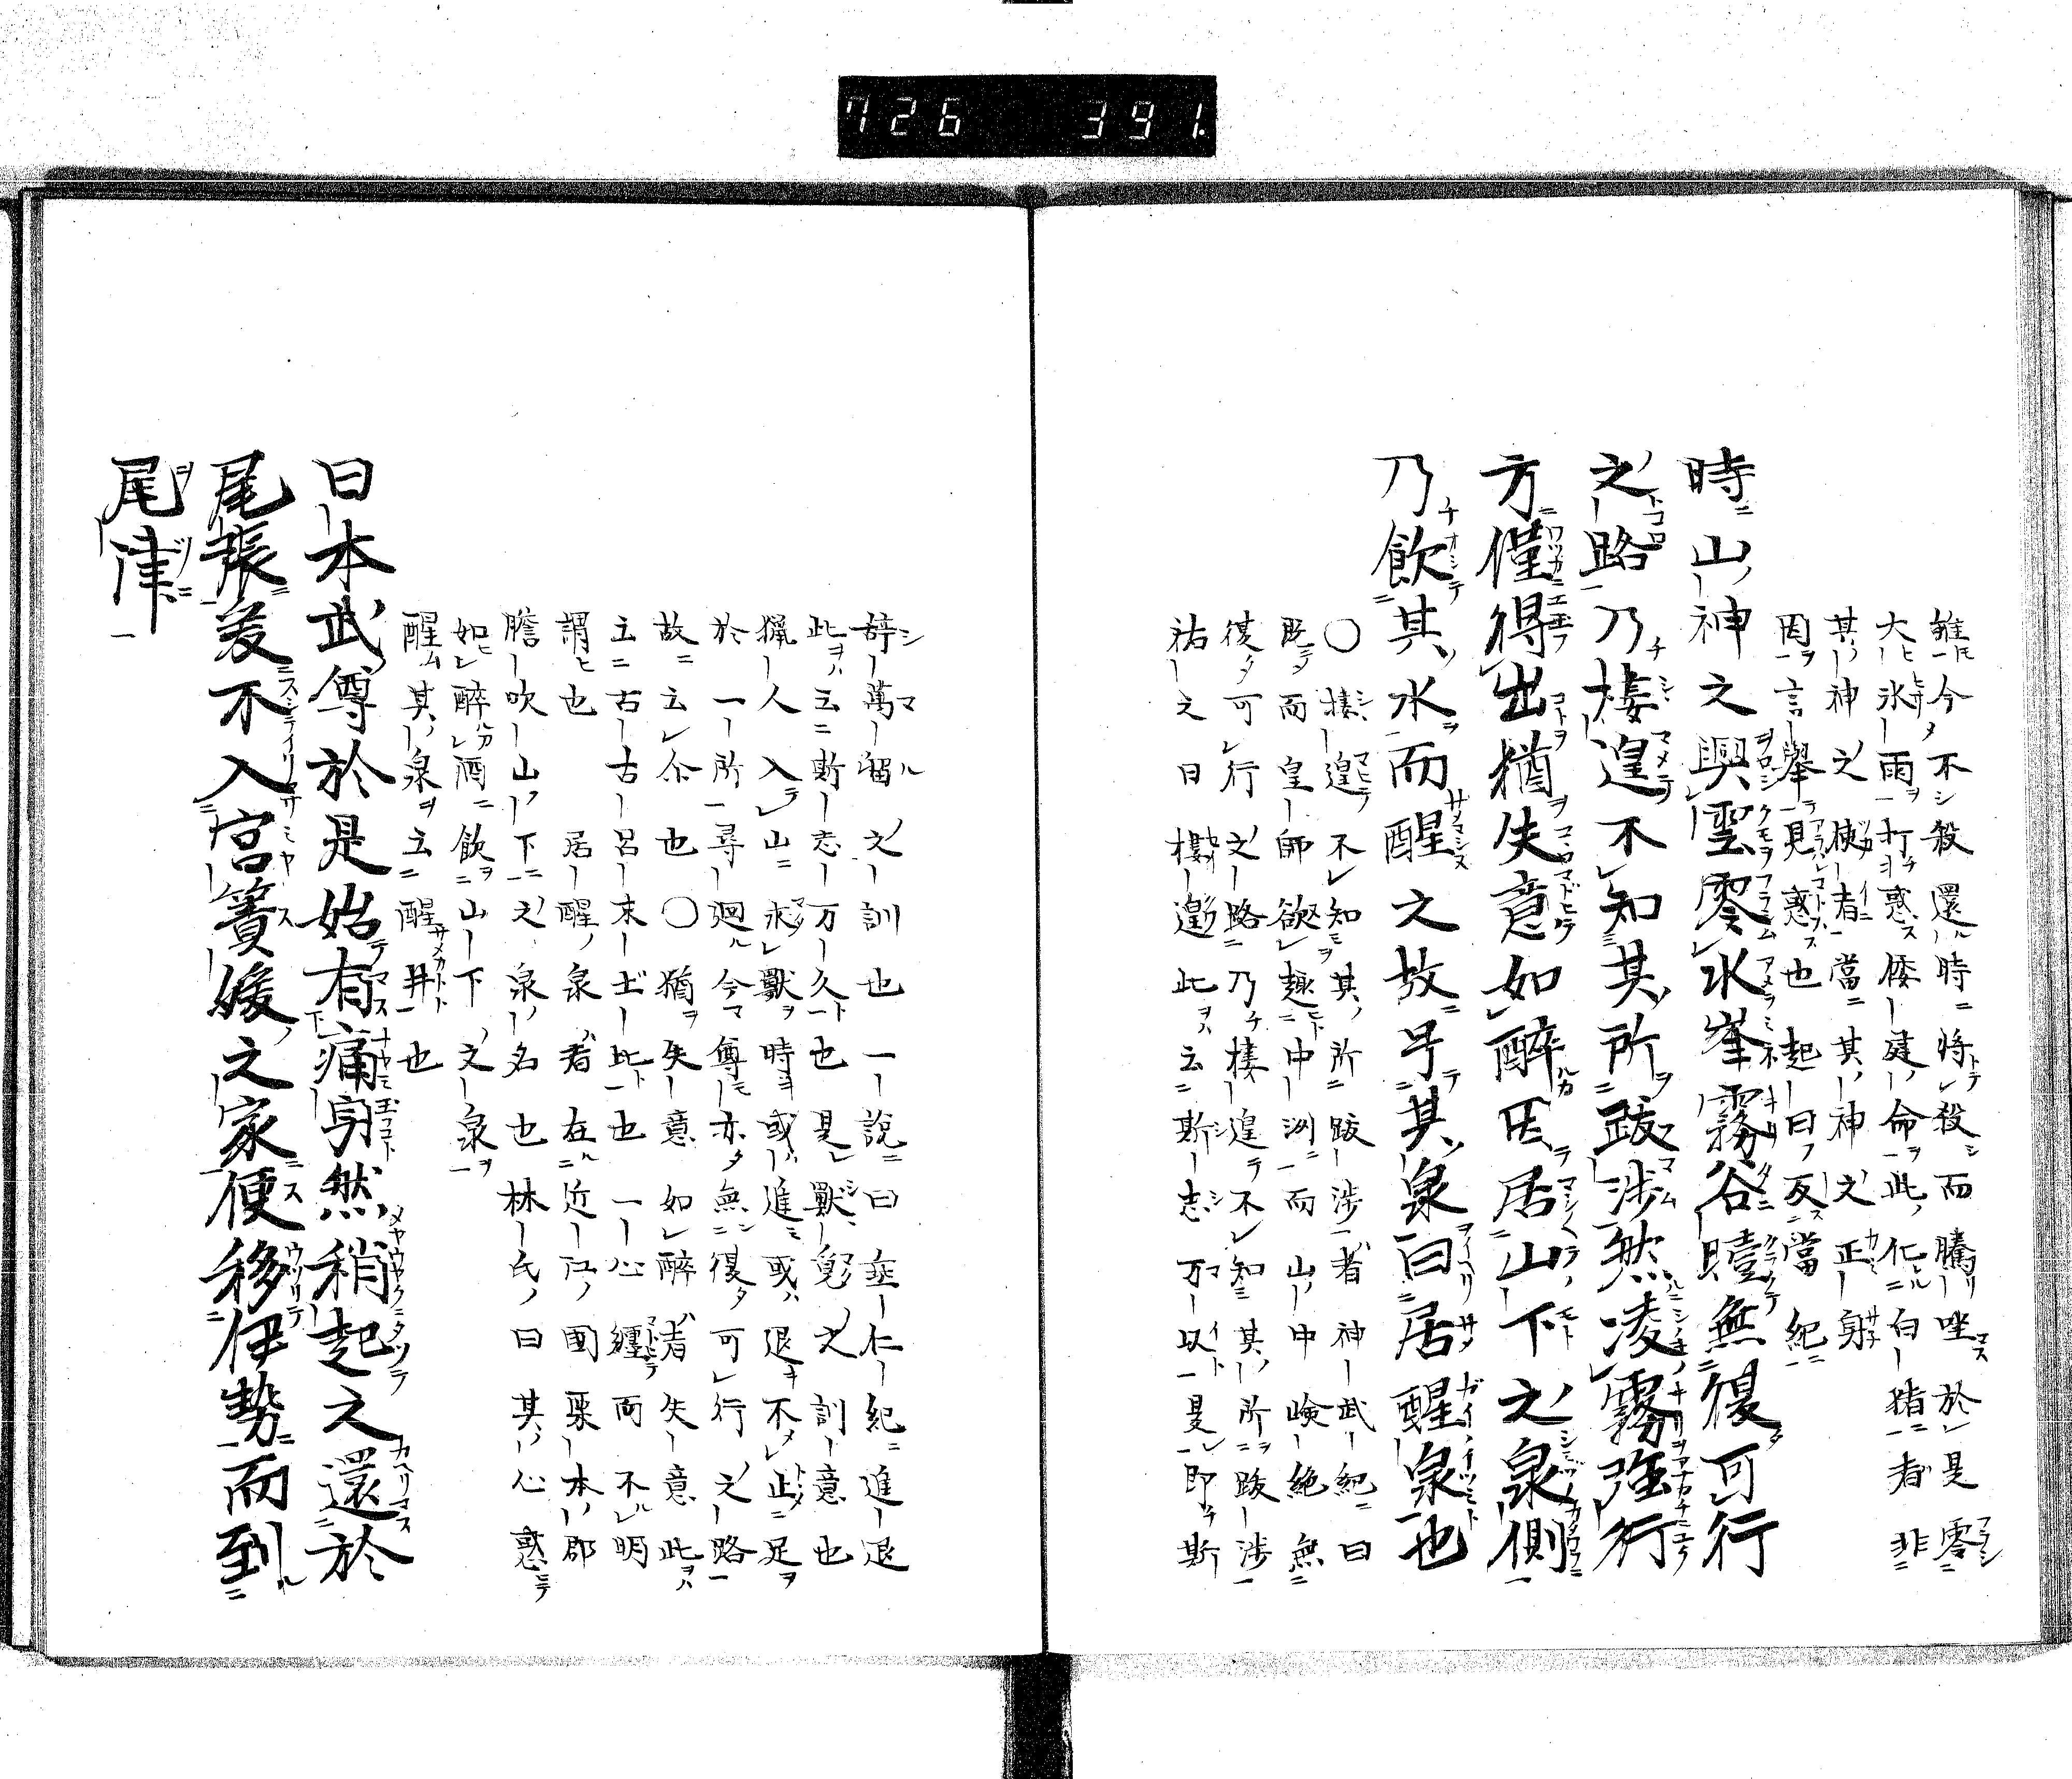 726 391.
雖今不殺還時將殺而騰坐於是零
大氷雨打惑倭建命此化白猪者非
其神之使者當其神之正身
因言擧見惑也起曰及當紀
時山神之興雲零氷峯霧谷曀無復可行
之路乃棲遑不知其所跋涉然凌霧強行
方僅得出猶失意如醉因居山下之泉側
乃飲其水而醒之故号其泉曰居醒泉也
〇棲遑不知其所跋涉者神武紀曰
既而皇師欲趣中洲而山中嶮絶無
復可行之路乃棲遑不知其所跋涉
祐之曰棲遑此云斯志万以是即斯
辭萬留之訓也一說曰垂仁紀進退
此云斯志万久也是獸皃之訓意也
猟人入山求獸時或進或退不止足
於一所尋廻今尊亦無復可行之路
故云尒也〇猶失意如醉者失意此
云古古呂末士比也一心纏而不明
謂也居醒泉者在近江國栗本郡
膽吹山下之泉名也林氏曰其心惑
如醉酒飲山下之泉
醒其泉云醒井也
日本武尊於是始有痛身然稍起之還於
尾張爰不入宮簀媛之家便移伊勢而到
尾津